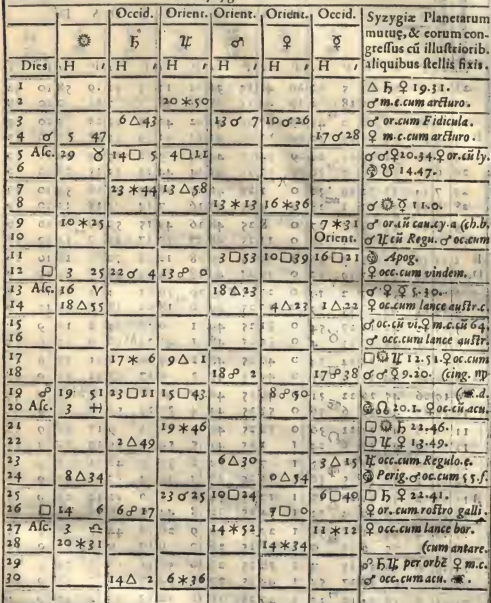 Occid. Orient. Orient. Orient. Occid. Syzygiæ Planetarum
☼ ♄ ♃ ♂ ♀ ☿ mutuę, & eorum con-
gressus cū illustriorib.
Dies H H H H H H aliquibus stellis fixis.
1 △ ♄ ♀ 19.31.
2 20 ✶ 50 ♂ m.c.cum arcturo.
3 6 △ 43 13 ☌ 7 10 ☌ 26 ♂ or.cum Fidicula.
4 ☌ 5 47 17 ☌ 28 ♀ m.c.cum arcturo.
5 Asc. 29 ♉ 14 □ 5 4 □ 11 ☌ ♂ ♀ 20.34. ♀ or.cū ly.
6 ☋ 14.47.
7 23 ✶ 44 13 △ 58
8 13 ✶ 13 16 ✶ 36 ☌ ☼ ☿ 11.0.
9 10 ✶ 25 7 ✶ 31 ♂ or.cū cau.cy.a (ch.b.
10 Orient. ☌ ♃ cū Regu. ♂ oc.cum
11 3 □ 53 10 □ 39 16 □ 21 Apog.
12 □ 3 25 22 ☌ 4 13 ☍ 0 ♀ occ.cum vindem.
13 Asc. 16 ♈ 18 △ 23 ☌ ♀ ☿ 5.30.
14 18 △ 55 4 △ 23 1 △ 22 ♀ oc.cum lance austr.c.
15 ♂ oc.cū vi. ♀ m.c.cū 64.
16 ♂ occ.cum lance austr.
17 17 ✶ 6 9 △ 1 □ ☼ ♃ 12.51. ♀ oc.cum
18 18 ☍ 2 17 ☍ 38 ☌ ♂ ☿ 9.20. (cing. ♍
19 ☍ 19 51 23 □ 11 15 □ 43 8 ☍ 50 .d.
20 Asc. 3 ♓ ☊ 20.1. ♀ oc.cū acu.
21 19 ✶ 46 □ ☼ ♄ 22.46.
22 2 △ 49 □ ♃ ♀ 13.49.
23 6 △ 30 3 △ 15 ♃ occ.cum Regulo.e.
24 8 △ 34 0 △ 54 Perig. ♂ oc.cum 55.f.
25 23 ☌ 25 10 □ 24 6 □ 40 □ ♄ ♀ 22.41.
26 □ 14 6 6 ☍ 17 7 □ 0 ♀ or.cum rostro galli.
27 Asc. 3 ♎ 14 ✶ 52 11 ✶ 12 ♀ occ.cum lance bor.
28 20 ✶ 31 14 ✶ 34 (cum antare.
29 ☍ ♄ ♃ per orbē ♀ m.c.
30 14 △ 2 6 ✶ 36 ♂ occ.cum acu.